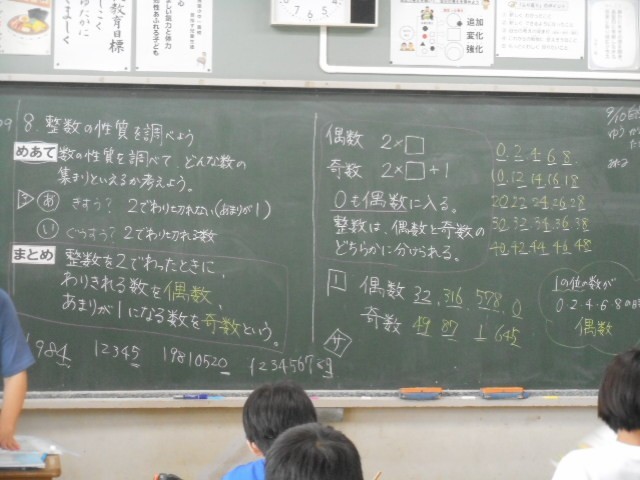 教育目標
追加
変化
強化
8. 整数の性質を調べよう
めあて
数の性質を調べて、どんな数の
集まりといえるか考えよう。
あ きすう? 2でわり切れない(あまりが1)
い ぐうすう? 2でわり切れる数
まとめ
整数を2でわったときに、
わりきれる数を偶数、
あまりが1になる数を奇数という。
1984 12345 19810520 123456789
偶数 2×□
奇数 2×□+1
0も偶数に入る。
整数は、偶数と奇数の
どちらかに分けられる。
1 偶数 32, 316, 578, 0
奇数 49 87 1 645
サ
0, 2, 4, 6, 8,
10, 12, 14, 16, 18
20 22 24 26 28
30 32 34 36 38
40 42 44 46 48
1の位の数が
0・2・4・6・8の
偶数